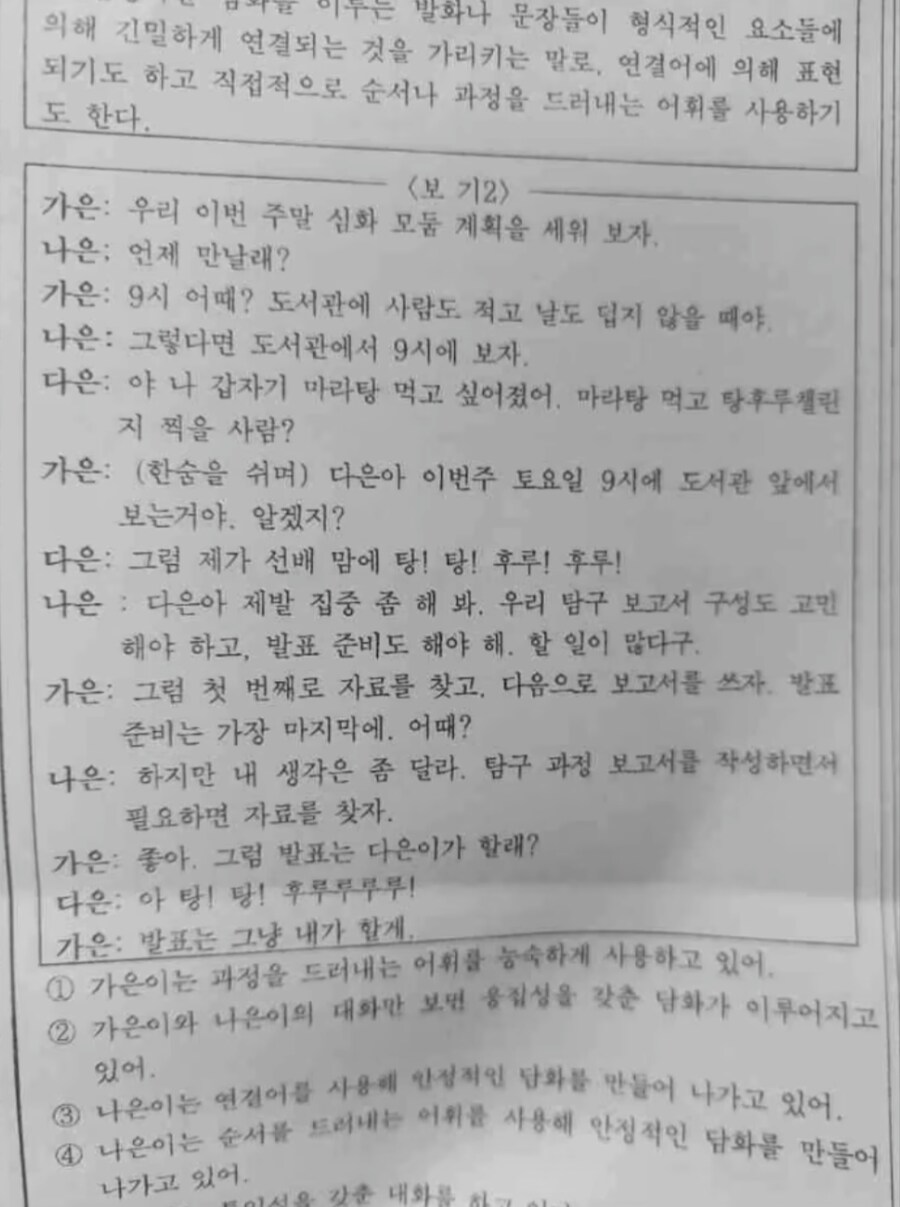 담화를 이루는 발화나 문장들이 형식적인 요소들에
의해 긴밀하게 연결되는 것을 가리키는 말로, 연결어에 의해 표현
되기도 하고 직접적으로 순서나 과정을 드러내는 어휘를 사용하기
도 한다.
〈보 기2〉
가은: 우리 이번 주말 심화 모둠 계획을 세워 보자.
나은: 언제 만날래?
가은: 9시 어때? 도서관에 사람도 적고 날도 덥지 않을 때야.
나은: 그렇다면 도서관에서 9시에 보자.
다은: 야 나 갑자기 마라탕 먹고 싶어졌어. 마라탕 먹고 탕후루챌린
지 찍을 사람?
가은: (한숨을 쉬며) 다은아 이번주 토요일 9시에 도서관 앞에서
보는거야. 알겠지?
다은: 그럼 제가 선배 맘에 탕! 탕! 후루! 후루!
나은 : 다은아 제발 집중 좀 해 봐. 우리 탐구 보고서 구성도 고민
해야 하고, 발표 준비도 해야 해. 할 일이 많다구.
가은: 그럼 첫 번째로 자료를 찾고, 다음으로 보고서를 쓰자. 발표
준비는 가장 마지막에. 어때?
나은: 하지만 내 생각은 좀 달라. 탐구 과정 보고서를 작성하면서
필요하면 자료를 찾자.
가은: 좋아. 그럼 발표는 다은이가 할래?
다은: 아 탕! 탕! 후루루루루!
가은: 발표는 그냥 내가 할게.
① 가은이는 과정을 드러내는 어휘를 능숙하게 사용하고 있어.
② 가은이와 나은이의 대화만 보면 응집성을 갖춘 담화가 이루어지고
있어.
③ 나은이는 연결어를 사용해 안정적인 담화를 만들어 나가고 있어.
④ 나은이는 순서를 드러내는 어휘를 사용해 안정적인 담화를 만들어
나가고 있어.
통일성을 갖춘 대화를 하고